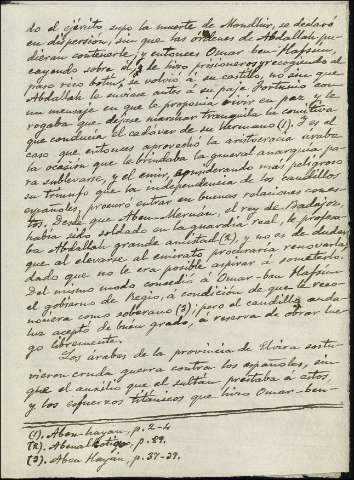 do el ejército supo la muerte de Mondhir, se declaró
en dispersión, sin que las órdenes de Abdallah pu-
dieran contenerle; y entonces Omar ben-Hafsún,
cayendo sobre él, le hizo prisioneros y recogiendo al
paso rico botín, se volvió á su castillo, no sin que
Abdallah le enviase antes á su paje Fortunio con
un mensaje en que le proponía vivir en paz y le
rogaba que dejase marchar tranquila la comitiva
que conducía el cadáver de su hermano (1). Es el
caso que entonces aprovechó la aristocracia árabe
la ocasión que le brindaba la general anarquía pa-
ra sublevarse, y el emir, considerando más peligroso
su triunfo que la independencia de los caudillos
españoles, procuró entrar en buenas relaciones con es-
tos. Desde que Aben-Meruan, el rey de Badajoz,
había sido soldado en la guardia real, le profesa-
ba Abdallah grande amistad (2), y no es de dudar
que al elevarse al emirato procuraría renovarla,
dado que no le era posible aspirar á someterlo.
Del mismo modo concedió á Omar-ben Hafsún
el gobierno de Regio, á condición de que le reco-
nociera como soberano (3); pero el caudillo anda-
luz aceptó de buen grado, á reserva de obrar lue-
go libremente.
Los árabes de la provincia de Elvira sostu-
vieron cruda guerra contra los españoles, sin
que el auxilio que el sultán prestaba á estos,
y los esfuerzos titánicos que hizo Omar-ben-
(1). Aben-hayan, p. 2-4
(2). p. 59.
(3). Aben Hayán, p. 37-39.